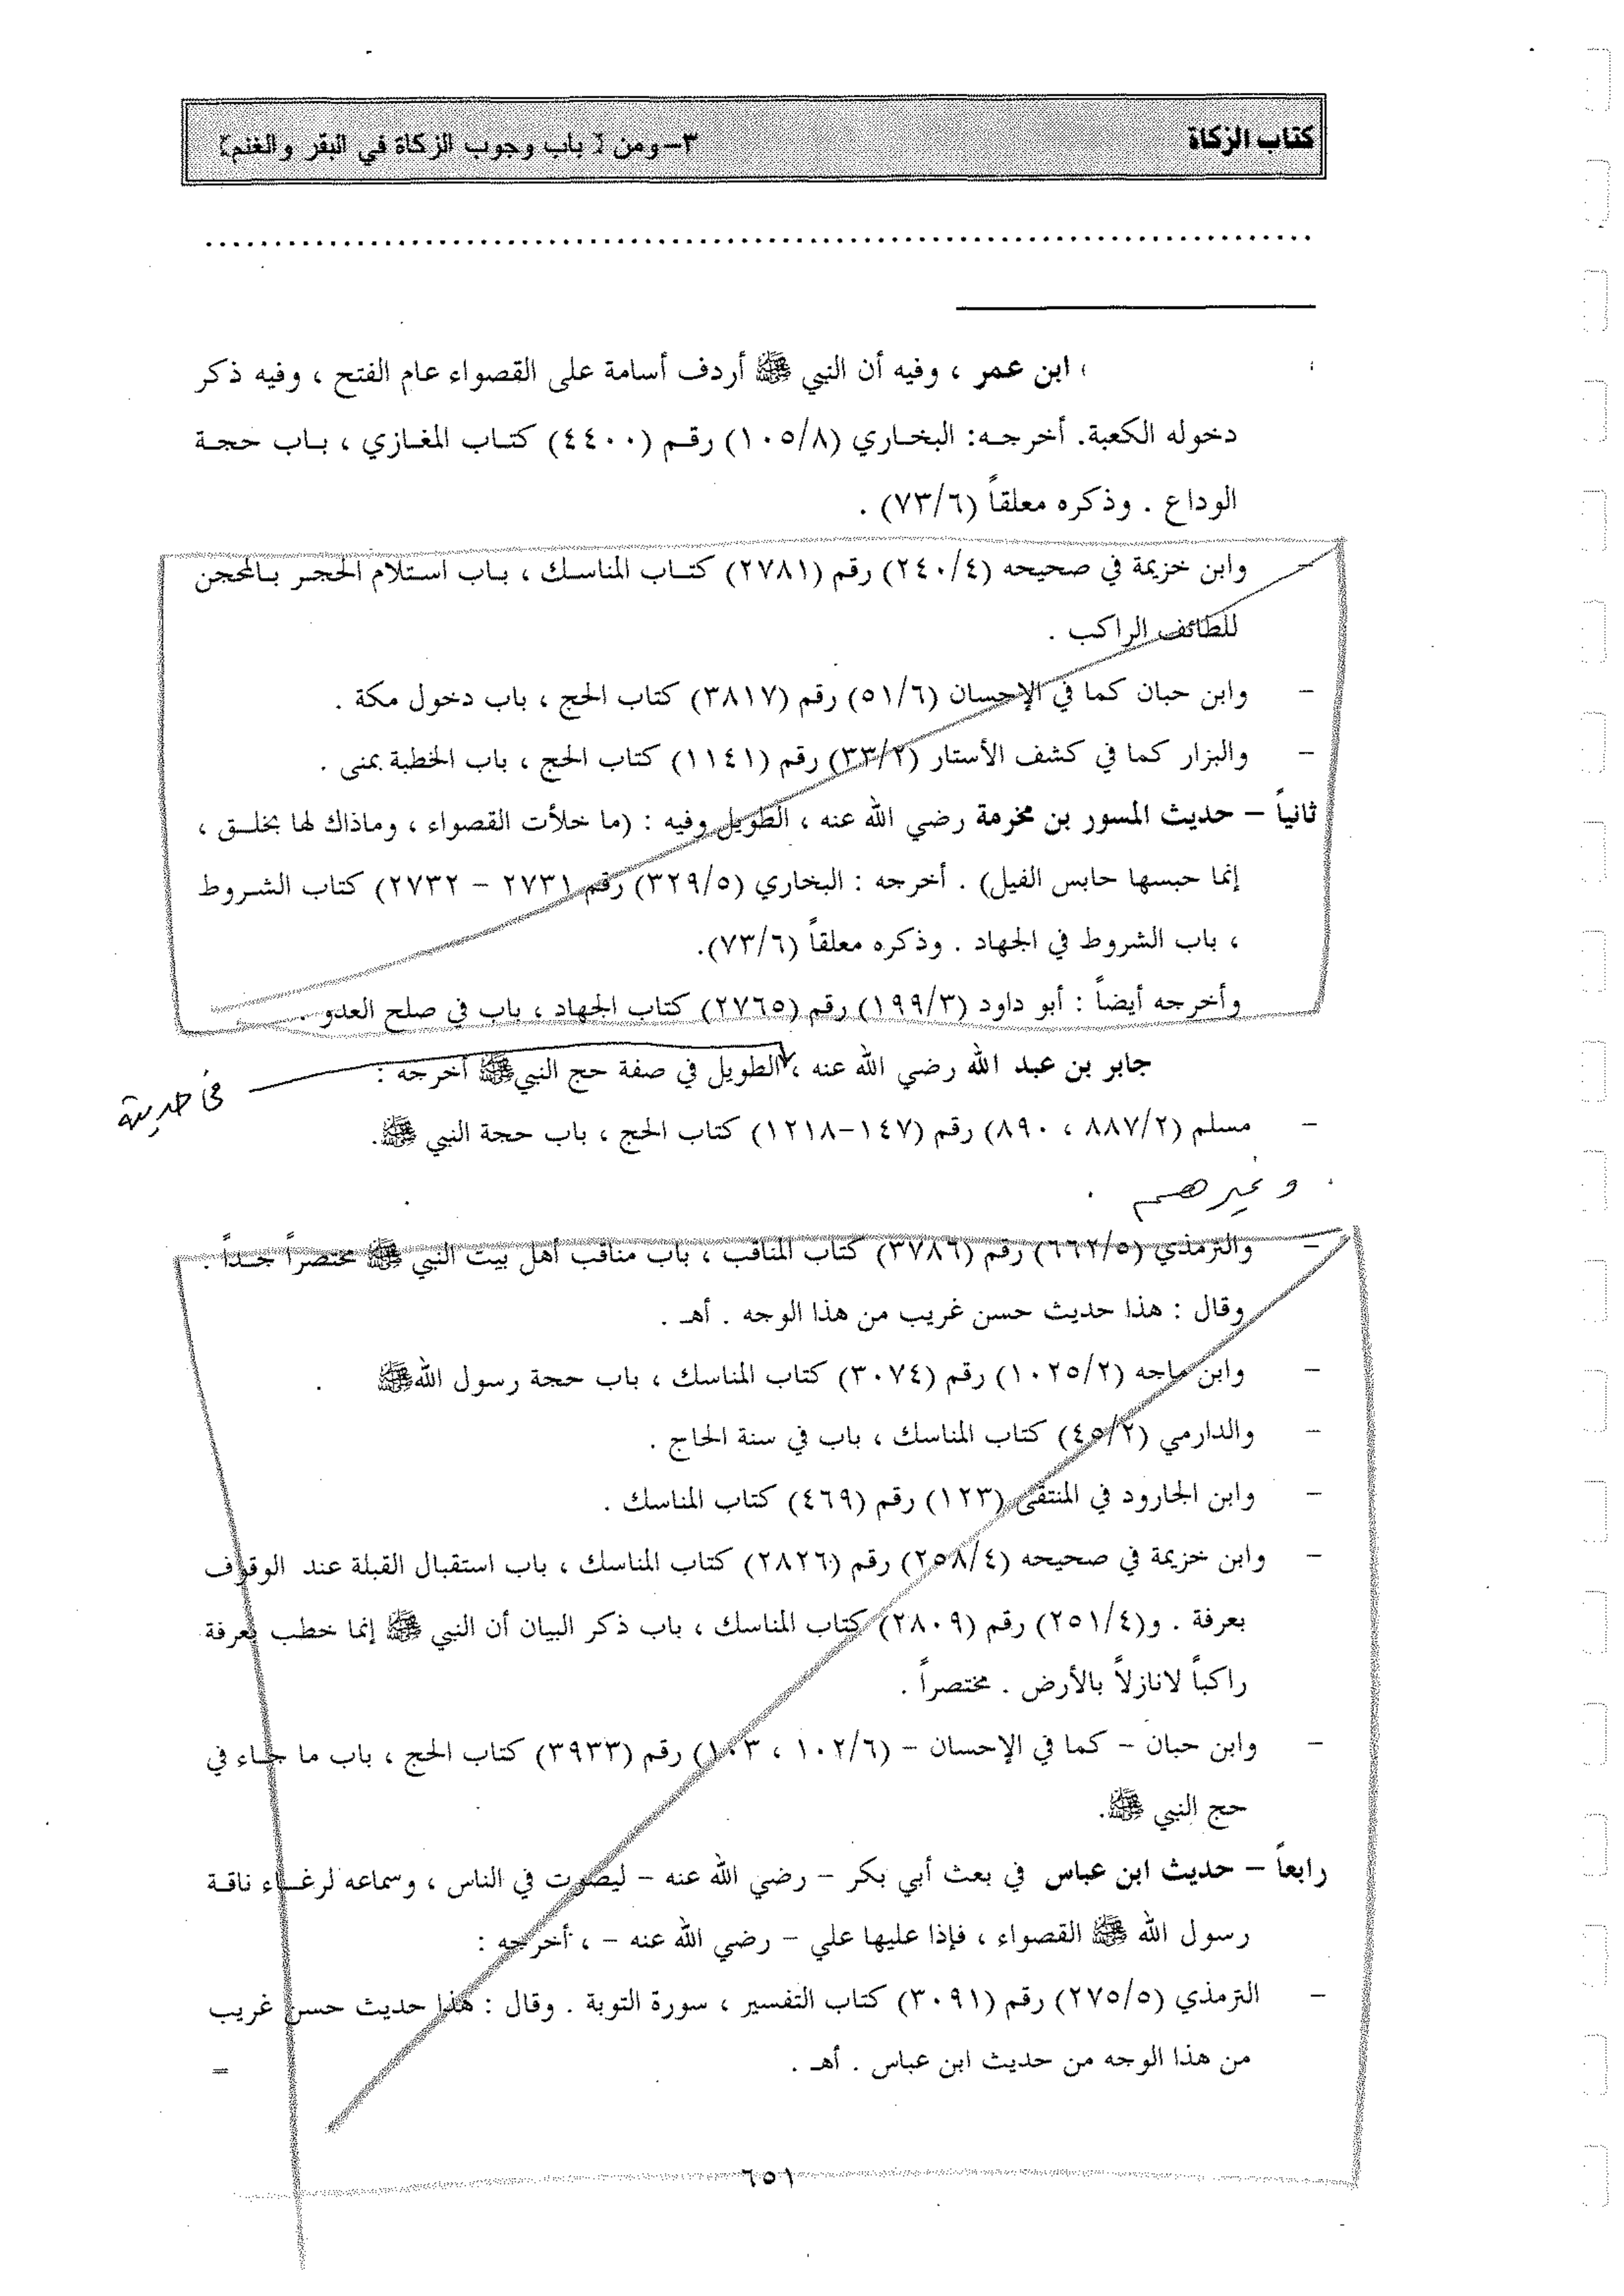 كتاب الزكاة
٣-ومن [ باب وجوب الزكاة في البقر والغنم ]
................................................................................
، ابن عمر ، وفيه أن النبي ﷺ أردف أسامة على القصواء عام الفتح ، وفيه ذكر
دخوله الكعبة. أخرجه: البخاري (١٠٥/٨) رقم (٤٤٠٠) كتاب المغازي ، باب حجة
الوداع . وذكره معلقاً (٧٣/٦) .
- وابن خزيمة في صحيحه (٢٤٠/٤) رقم (٢٧٨١) كتاب المناسك ، باب استلام الحجر بالمحجن
للطائف الراكب .
- وابن حبان كما في الإحسان (٥١/٦) رقم (٣٨١٧) كتاب الحج ، باب دخول مكة .
- والبزار كما في كشف الأستار (٣٣/٢) رقم (١١٤١) كتاب الحج ، باب الخطبة بمنى .
ثانياً - حديث المسور بن مخرمة رضي الله عنه ، الطويل وفيه : (ما خلأت القصواء ، وماذاك لها بخلق ،
إنما حبسها حابس الفيل) . أخرجه : البخاري (٣٢٩/٥) رقم (٢٧٣١ - ٢٧٣٢) كتاب الشروط
، باب الشروط في الجهاد . وذكره معلقاً (٧٣/٦).
وأخرجه أيضاً : أبو داود (١٩٩/٣) رقم (٢٧٦٥) كتاب الجهاد ، باب في صلح العدو .
جابر بن عبد الله رضي الله عنه ، الطويل في صفة حج النبي ﷺ أخرجه :
في حديثه
- مسلم (٨٨٧/٢ ، ٨٩٠) رقم (١٤٧-١٢١٨) كتاب الحج ، باب حجة النبي ﷺ.
وغيرهم .
- والترمذي (٦٦٢/٥) رقم (٣٧٨٦) كتاب المناقب ، باب مناقب أهل بيت النبي ﷺ مختصراً جداً .
وقال : هذا حديث حسن غريب من هذا الوجه . أهـ .
- وابن ماجه (١٠٢٥/٢) رقم (٣٠٧٤) كتاب المناسك ، باب حجة رسول الله ﷺ .
- والدارمي (٤٥/٢) كتاب المناسك ، باب في سنة الحاج .
- وابن الجارود في المنتقى (١٢٣) رقم (٤٦٩) كتاب المناسك .
- وابن خزيمة في صحيحه (٢٥٨/٤) رقم (٢٨٢٦) كتاب المناسك ، باب استقبال القبلة عند الوقوف
بعرفة . و(٢٥١/٤) رقم (٢٨٠٩) كتاب المناسك ، باب ذكر البيان أن النبي ﷺ إنما خطب بعرفة
راكباً لانازلاً بالأرض . مختصراً .
- وابن حبان - كما في الإحسان - (١٠٢/٦ ، ١٠٣) رقم (٣٩٣٣) كتاب الحج ، باب ما جاء في
حج النبي ﷺ.
رابعاً - حديث ابن عباس في بعث أبي بكر - رضي الله عنه - ليصوت في الناس ، وسماعه لرغاء ناقة
رسول الله ﷺ القصواء ، فإذا عليها علي - رضي الله عنه - ، أخرجه :
- الترمذي (٢٧٥/٥) رقم (٣٠٩١) كتاب التفسير ، سورة التوبة . وقال : هذا حديث حسن غريب
من هذا الوجه من حديث ابن عباس . أهـ . =
٦٥١